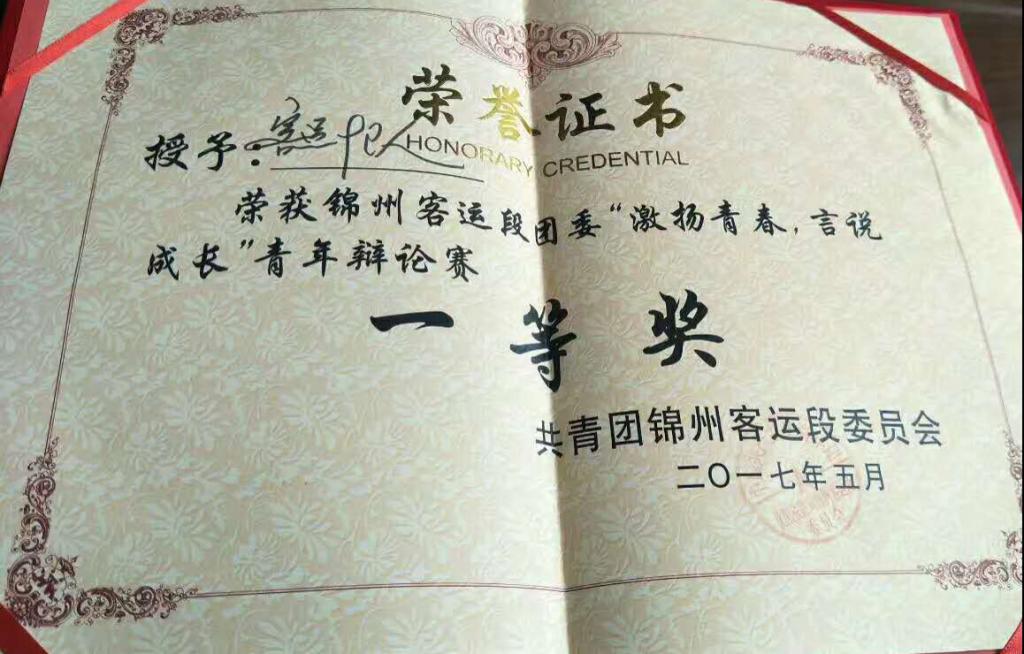 荣誉证书
HONORARY CREDENTIAL
授予:客运
荣获锦州客运段团委“激扬青春,言说
成长”青年辩论赛
一等奖
共青团锦州客运段委员会
二〇一七年五月